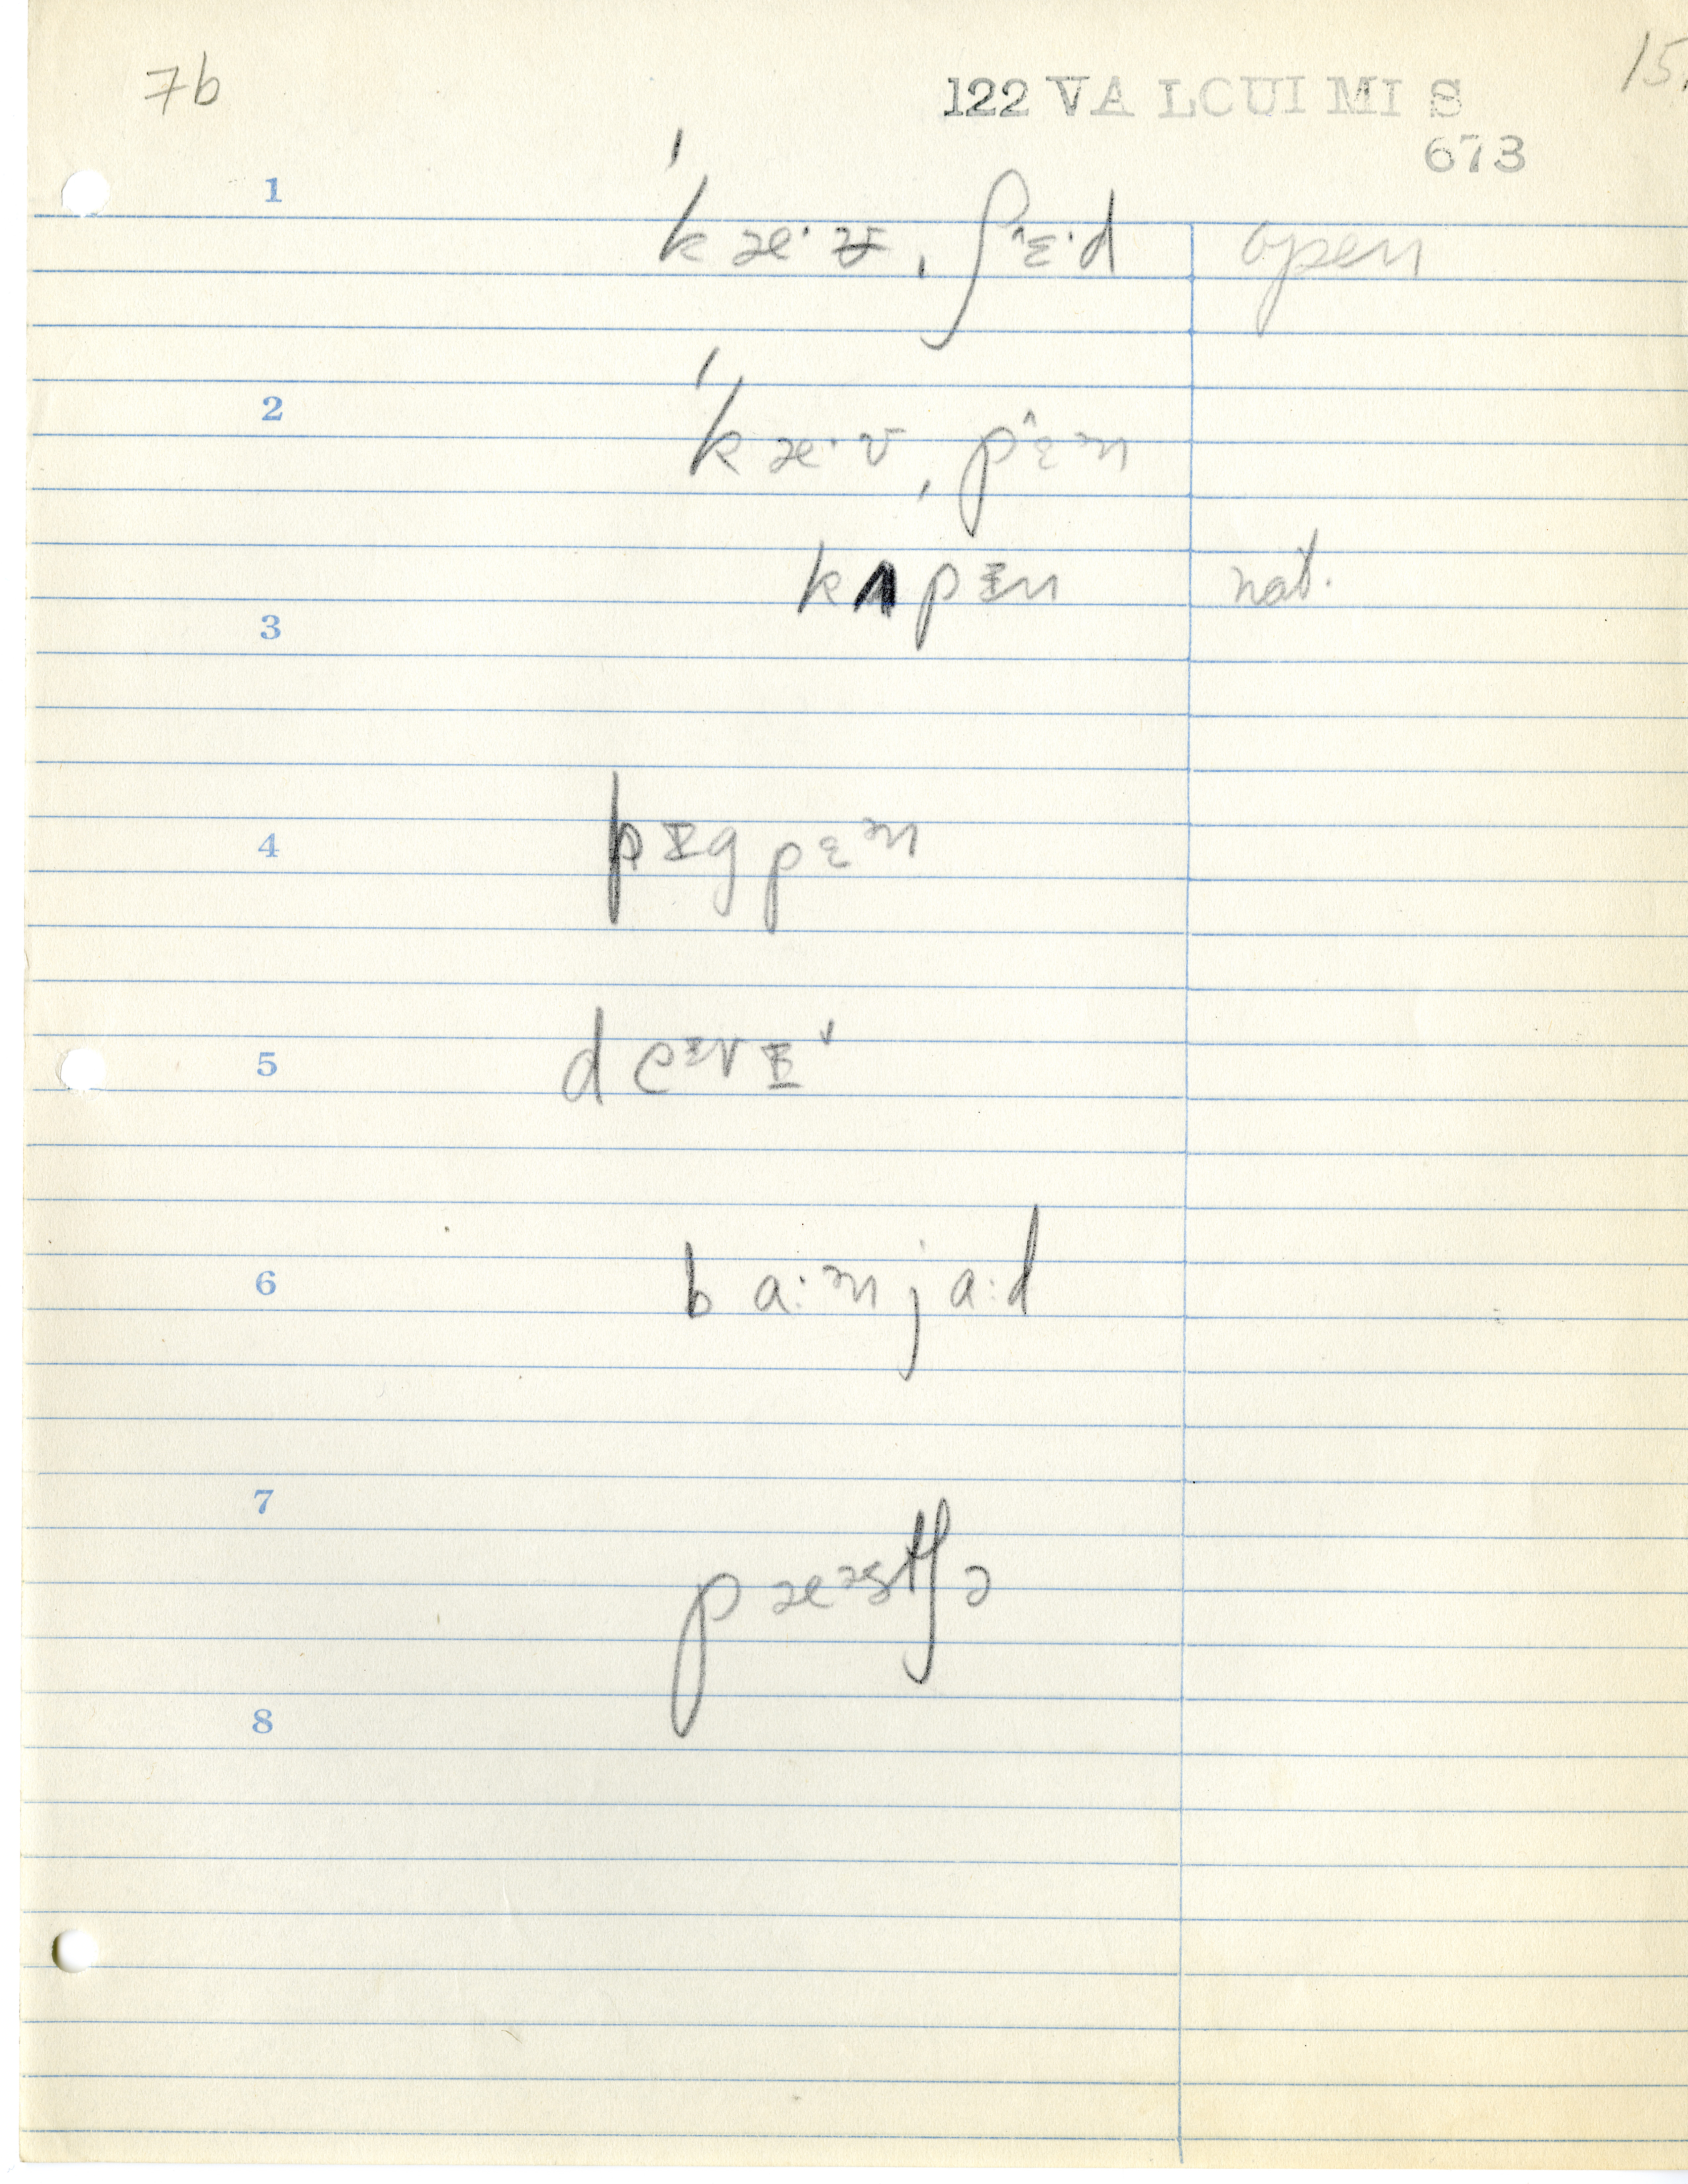 7b
122 VA LCUI MI S
15.
673
1
ˈkæ·v̵ˌʃɛ̂·d open
2
ˈkæ·vˌpɛ̂n
kʌpɪn nat.
3
pɪgpɛn
4
5
deɪvɪ˅
6
ba:nja:d
7
pæəstʃə
8